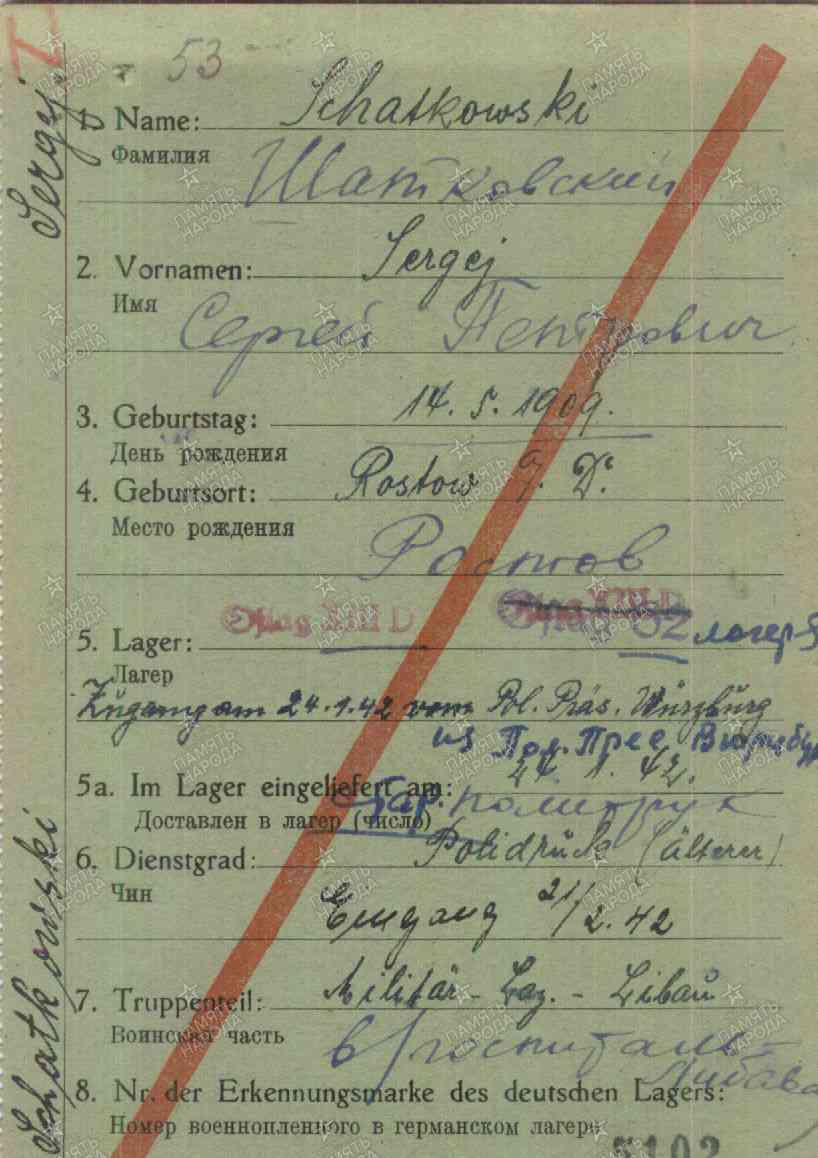 I
53
Sergej
1. Name: Schatkowski
Фамилия
Шатковский
2. Vornamen: Sergej
Имя
Сергей Петрович
3. Geburtstag: 14. 5. 1909.
День рождения
4. Geburtsort: Rostow a. D.
Место рождения
Ростов
Oflag XIII D Oflag XIII D
5. Lager: 62 лагерь
Лагер
Zugang am 24.1.42 vom Pol. Präs. Würzburg
из Пол. През. Вюрцбург
24. 1. 42.
5a. Im Lager eingeliefert am:
Доставлен в лагер (число)
Стар. политрук
6. Dienstgrad: Politdruk (älterer)
Чин
Eingang 21/2.42
7. Truppenteil: Militär-Laz.-Libau
Воинская часть
в госпиталь
Либава
8. Nr. der Erkennungsmarke des deutschen Lagers:
Номер военнопленного в германском лагере
5102
Schatkowski
ПАМЯТЬ НАРОДА